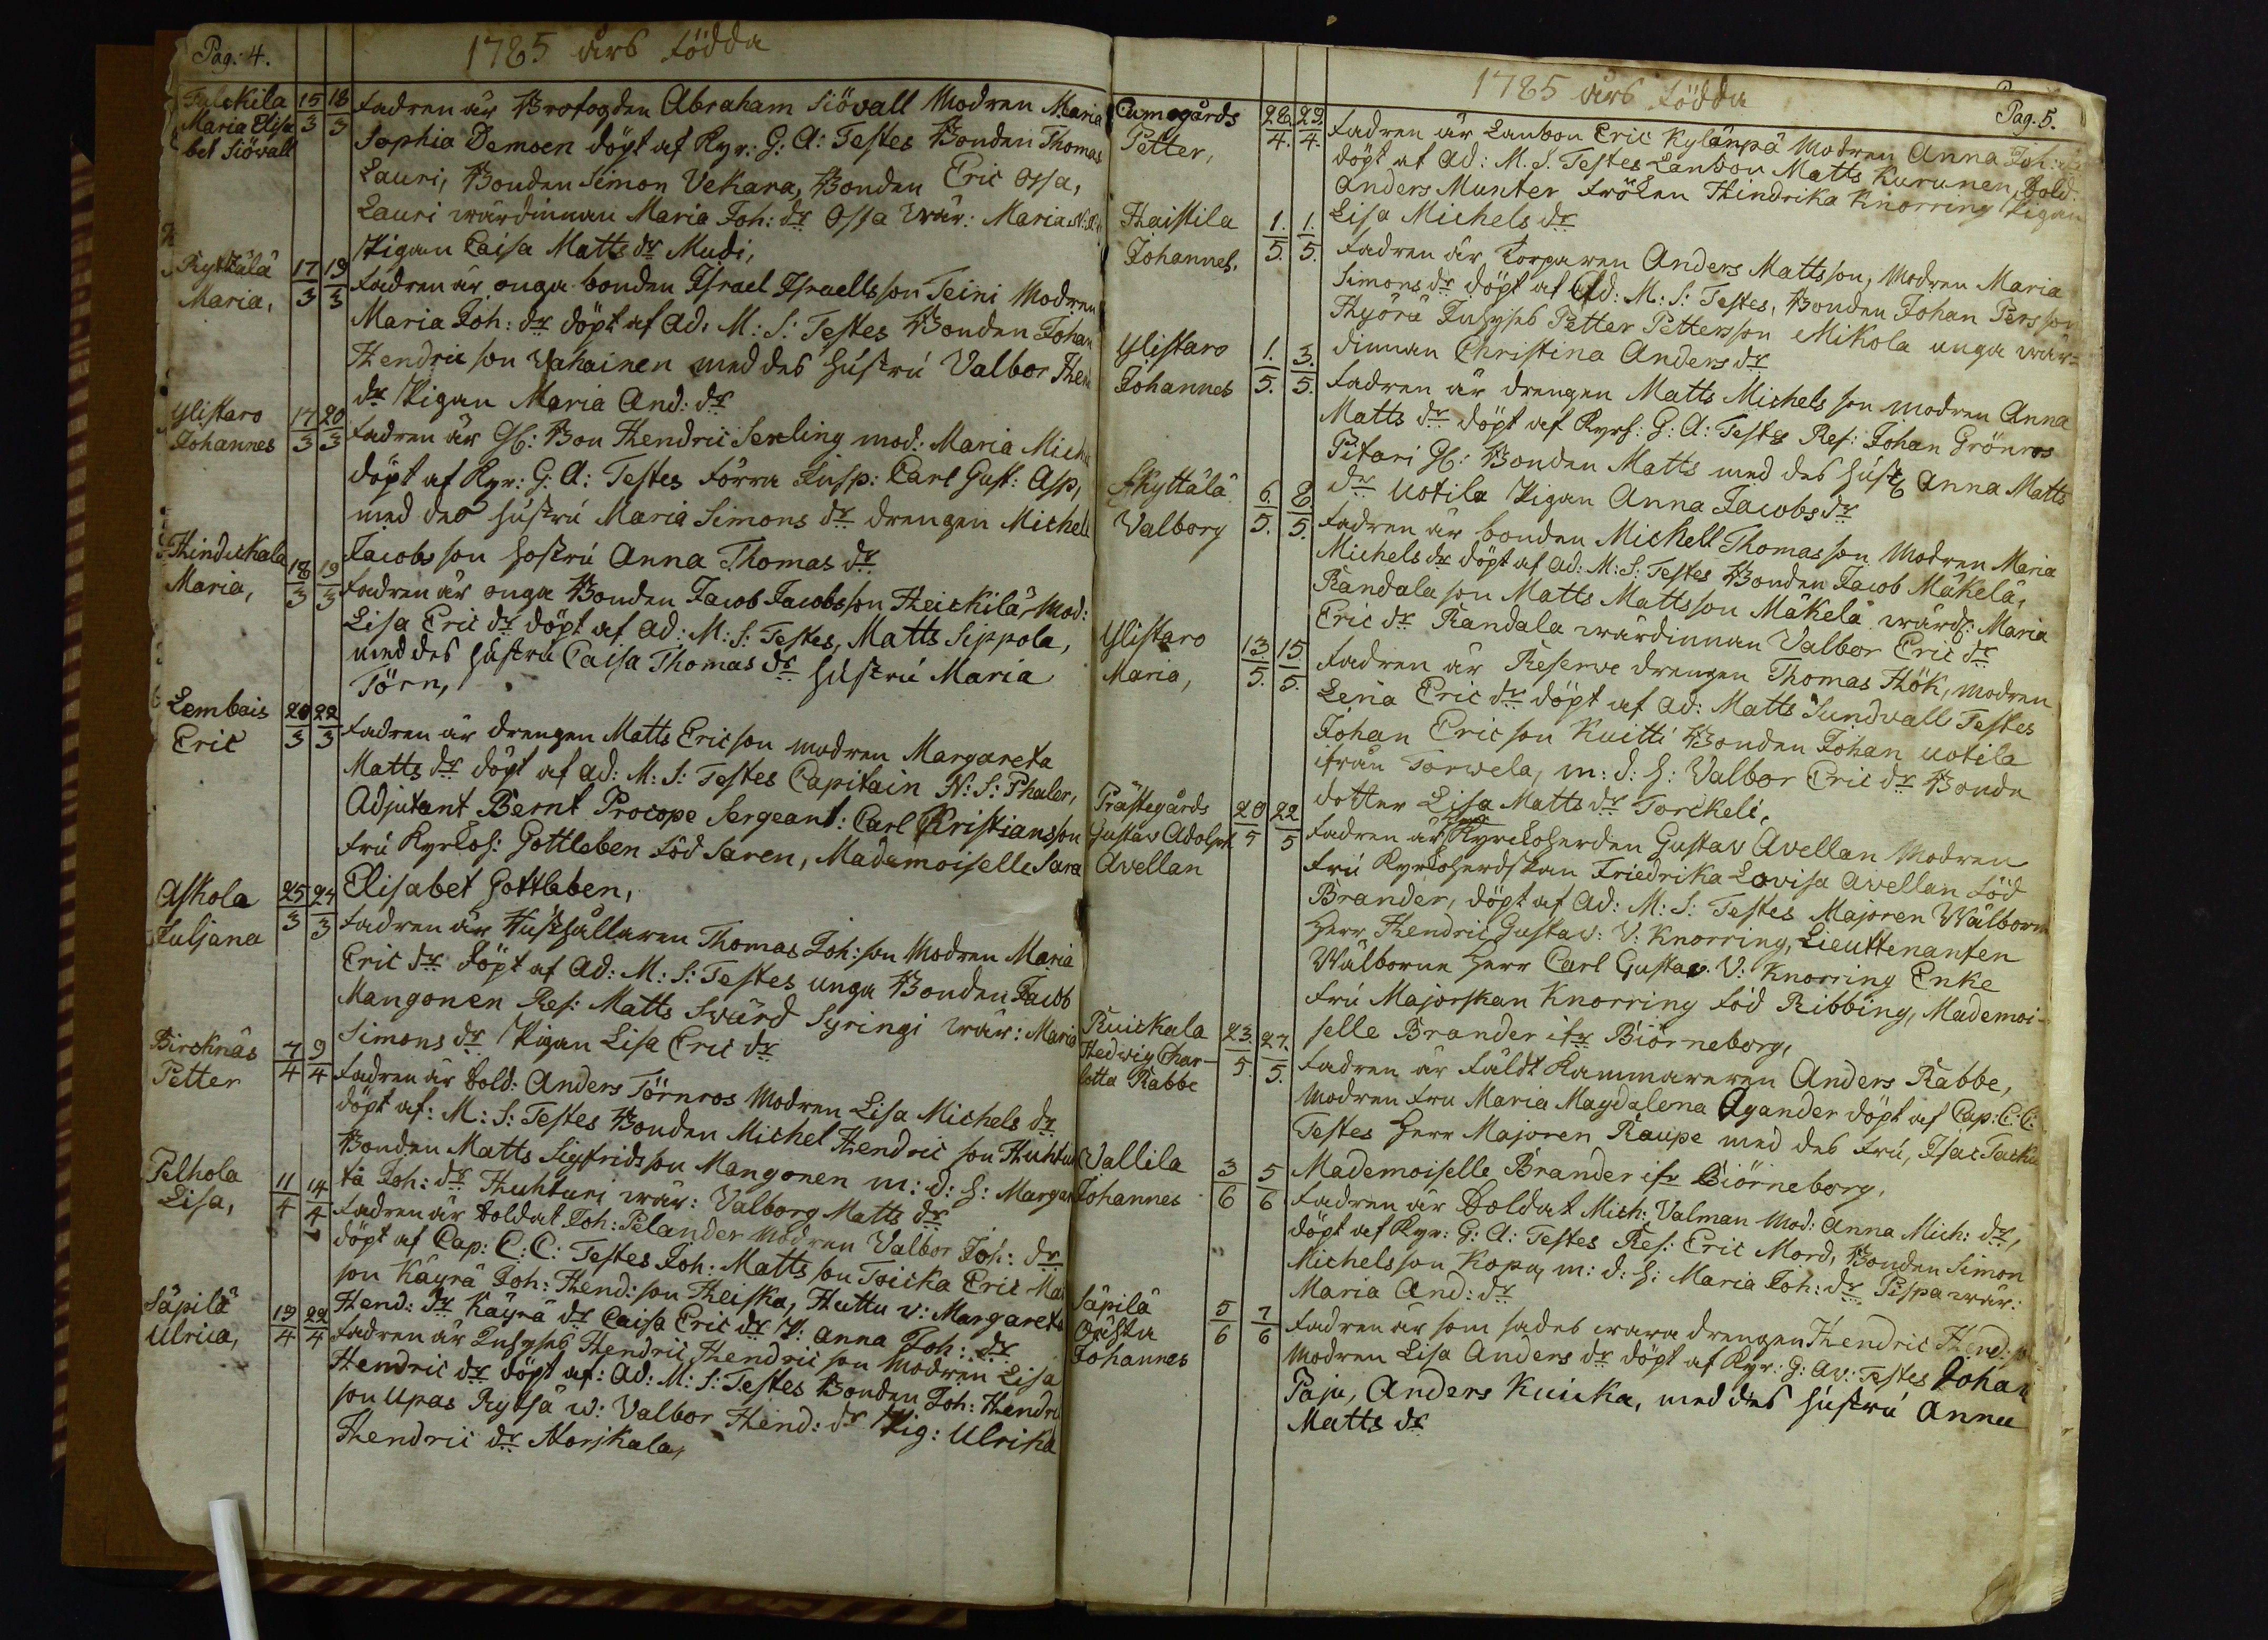 Pag: 4.
1785 års födda
Maria Elisa
bet Siövall
15/3 18/3
fadren är Brofogden Abraham Siövall Modren Maria
Sophia Demoen döpt af Kyr: G: A: Testes Bonden Thomas
Lauri, Bonden Simon Vekara, Bonden Eric Ossa,
Lauri wärdinnan Maria Joh: dr Ossa wär: Maria
Pigan Caisa Matts dr Mudi,
Kyttälä
Maria,
17/3 19/3
fadren är onga bonden Israel Israelsson Teini Modren
Maria Joh: dr döpt af Ad: M: S: Testes Bonden Johan
Hendric son Vahainen med des hustru Valbor Hen
dr Pigan Maria And: dr
Ylistaro
Johannes
17/3 20/3
fadren är Gl: Bon Hendric Serling mod: Maria Mich
döpt af Kyr: G: A: Testes förra Insp: Carl Gust: Asp,
med des hustru Maria Simons dr drengen Michell
Jacobs son hostru Anna Thomas dr
Maria,
18/3 19/3
fadren är onga Bonden Jacob Jacobsson Heickilä, Mod:
Lisa Eric dr döpt af Ad: M: S: Testes, Matts Sippola,
med des hustru Caisa Thomas dr hustru Maria
Törn,
Lembois
Eric
20/3 22/3
fadren är drengen Matts Ericson modren Margareta
Matts dr döpt af Ad: M: S: Testes Capitain N: S: Phaler,
Adjutant Bernt Procope Sergeant: Carl Kristiansson
fru Kyrkoh: Gottleben föd Saren, Mademoiselle Sara
Elisabet Gottleben,
Askola
Juljana
25/3 27/3
fadren är Hushållaren Thomas Joh: son Modren Maria
Eric dr döpt af Ad: M: S: Testes unga Bonden Jacob
Mangonen Res: Matts Svärd Syringi wär: Maria
Simons dr Pigan Lisa Eric dr
Bircknäs
Petter
7/4 9/4
fadren är Sold: Anders Törnros Modren Lisa Michels dr
döpt af: M: S: Testes Bonden Michel Hendric son Huhtu
Bonden Matts Sigfridsson Mangonen m: d: h: Margare
ta Joh: dr Huhturi wär: Valborg Matts dr
Pelhola
Lisa,
11/4 14/4
fadren är Soldat Joh: Pelander Modren Valbor Joh: dr
döpt af Cap: C: C: Testes Joh: Matts son Toicka Eric Ma
son Käyrä Joh: Hend: son Heiska, Huttu v: Margareta
Hend: dr Käyrä dr Caisa Eric dr P: Anna Joh: dr
Säpilä
Ulrica,
19/4 22/4
fadren är Inhyses Hendric Hendric son Modren Lisa
Hendric dr döpt af: Ad: M: S: Testes Bonden Joh: Hendri
son Upas Rytsä w: Valbor Hend: dr Pig: Ulrika
Hendric dr Norjkala,
1785 års födda
Pag. 5.
Cumogårds
Petter,
28/4. 29/4.
fadren är Lanbon Eric Kylänpä Modren Anna Joh:
döpt af Ad: M. S. Testes Lanbon Matts Kurunen, Sold:
Anders Munter fröken Hindrika Knorring Pigan
Lisa Michels dr
Haistila
Johannes.
1./5. 1./5.
fadren är Torparen Anders Mattsson, Modren Maria
Simons dr döpt af Ad: M: S: Testes, Bonden Johan Persson
Hyörä Inhyses Petter Pettersson Mikola unga wär=
dinnan Christina Anders dr
Ylistaro
Johannes
1./5. 3./5.
fadren är drengen Matts Michels son modren Anna
Matts dr döpt af Kyrh: G: A: Testes Res: Johan Grönros
Pitari Gl: Bonden Matts med des hust Anna Matts
dr Uotila Pigan Anna Jacobs dr
Kyttälä
Valborg
6./5. 8/5.
fadren är bonden Michell Thomasson Modren Maria
Michels dr döpt af Ad: M: S: Testes Bonden Jacob Mäkelä,
Randala son Matts Mattsson Mäkelä wärd: Maria
Eric dr Randala wärdinnan Valbor Eric dr
Ylistaro
Maria,
13./5. 15/5.
fadren är Reserve drengen Thomas Hök, Modren
Lena Eric dr döpt af Ad: Matts Sundvall Testes
Johan Ericson Kuitti Bonden Johan Uotila
ifrån Torwela, m: d: h: Valbor Eric dr Bonde
dotter Lisa Matts dr Torckeli,
Prästegårds
Gustav Adolph
Avellan
20/5 22/5
fadren är Kyrckoherden Gustav Avellan Modren
fru Kyrkoherdskan Friedrika Lovisa Avellan föd
Brander, döpt af Ad: M: S: Testes Majoren Wälborn
Herr Hendric Gustav: V: Knorring, Lieuttenanten
Wälborne Herr Carl Gustav: V: Knorring Enke
fru Majorskan Knorring föd Ribbing, Mademoi-
selle Brander ifr Biörneborg,
Ruickala
Hedwig Char-
lotta Rabbe
23./5. 27./5.
fadren är fäldt Kammareren Anders Rabbe,
Modren fru Maria Magdalena Agander döpt af Cap: C: C:
Testes Herr Majoren Raupe med des fru,
Mademoiselle Brander ifr Biörneborg,
Vallila
Johannes
3/6 5/6
fadren är Soldat Mich: Valman Mod: Anna Mich: dr,
döpt af Kyr: G: A: Testes Res: Eric Mord, Bonden Simon
Michelsson Kopa, m: d: h: Maria Joh: dr Pispa wär:
Maria And: dr
Säpilä
Oäkta
Johannes
5/6 7/6
fadren är som sades wara drengen Hendric Hend: son
Modren Lisa Anders dr döpt af Kyr: G: Av: Testes Johan
Paju, Anders Kuicka, med des hustru Anna
Matts dr